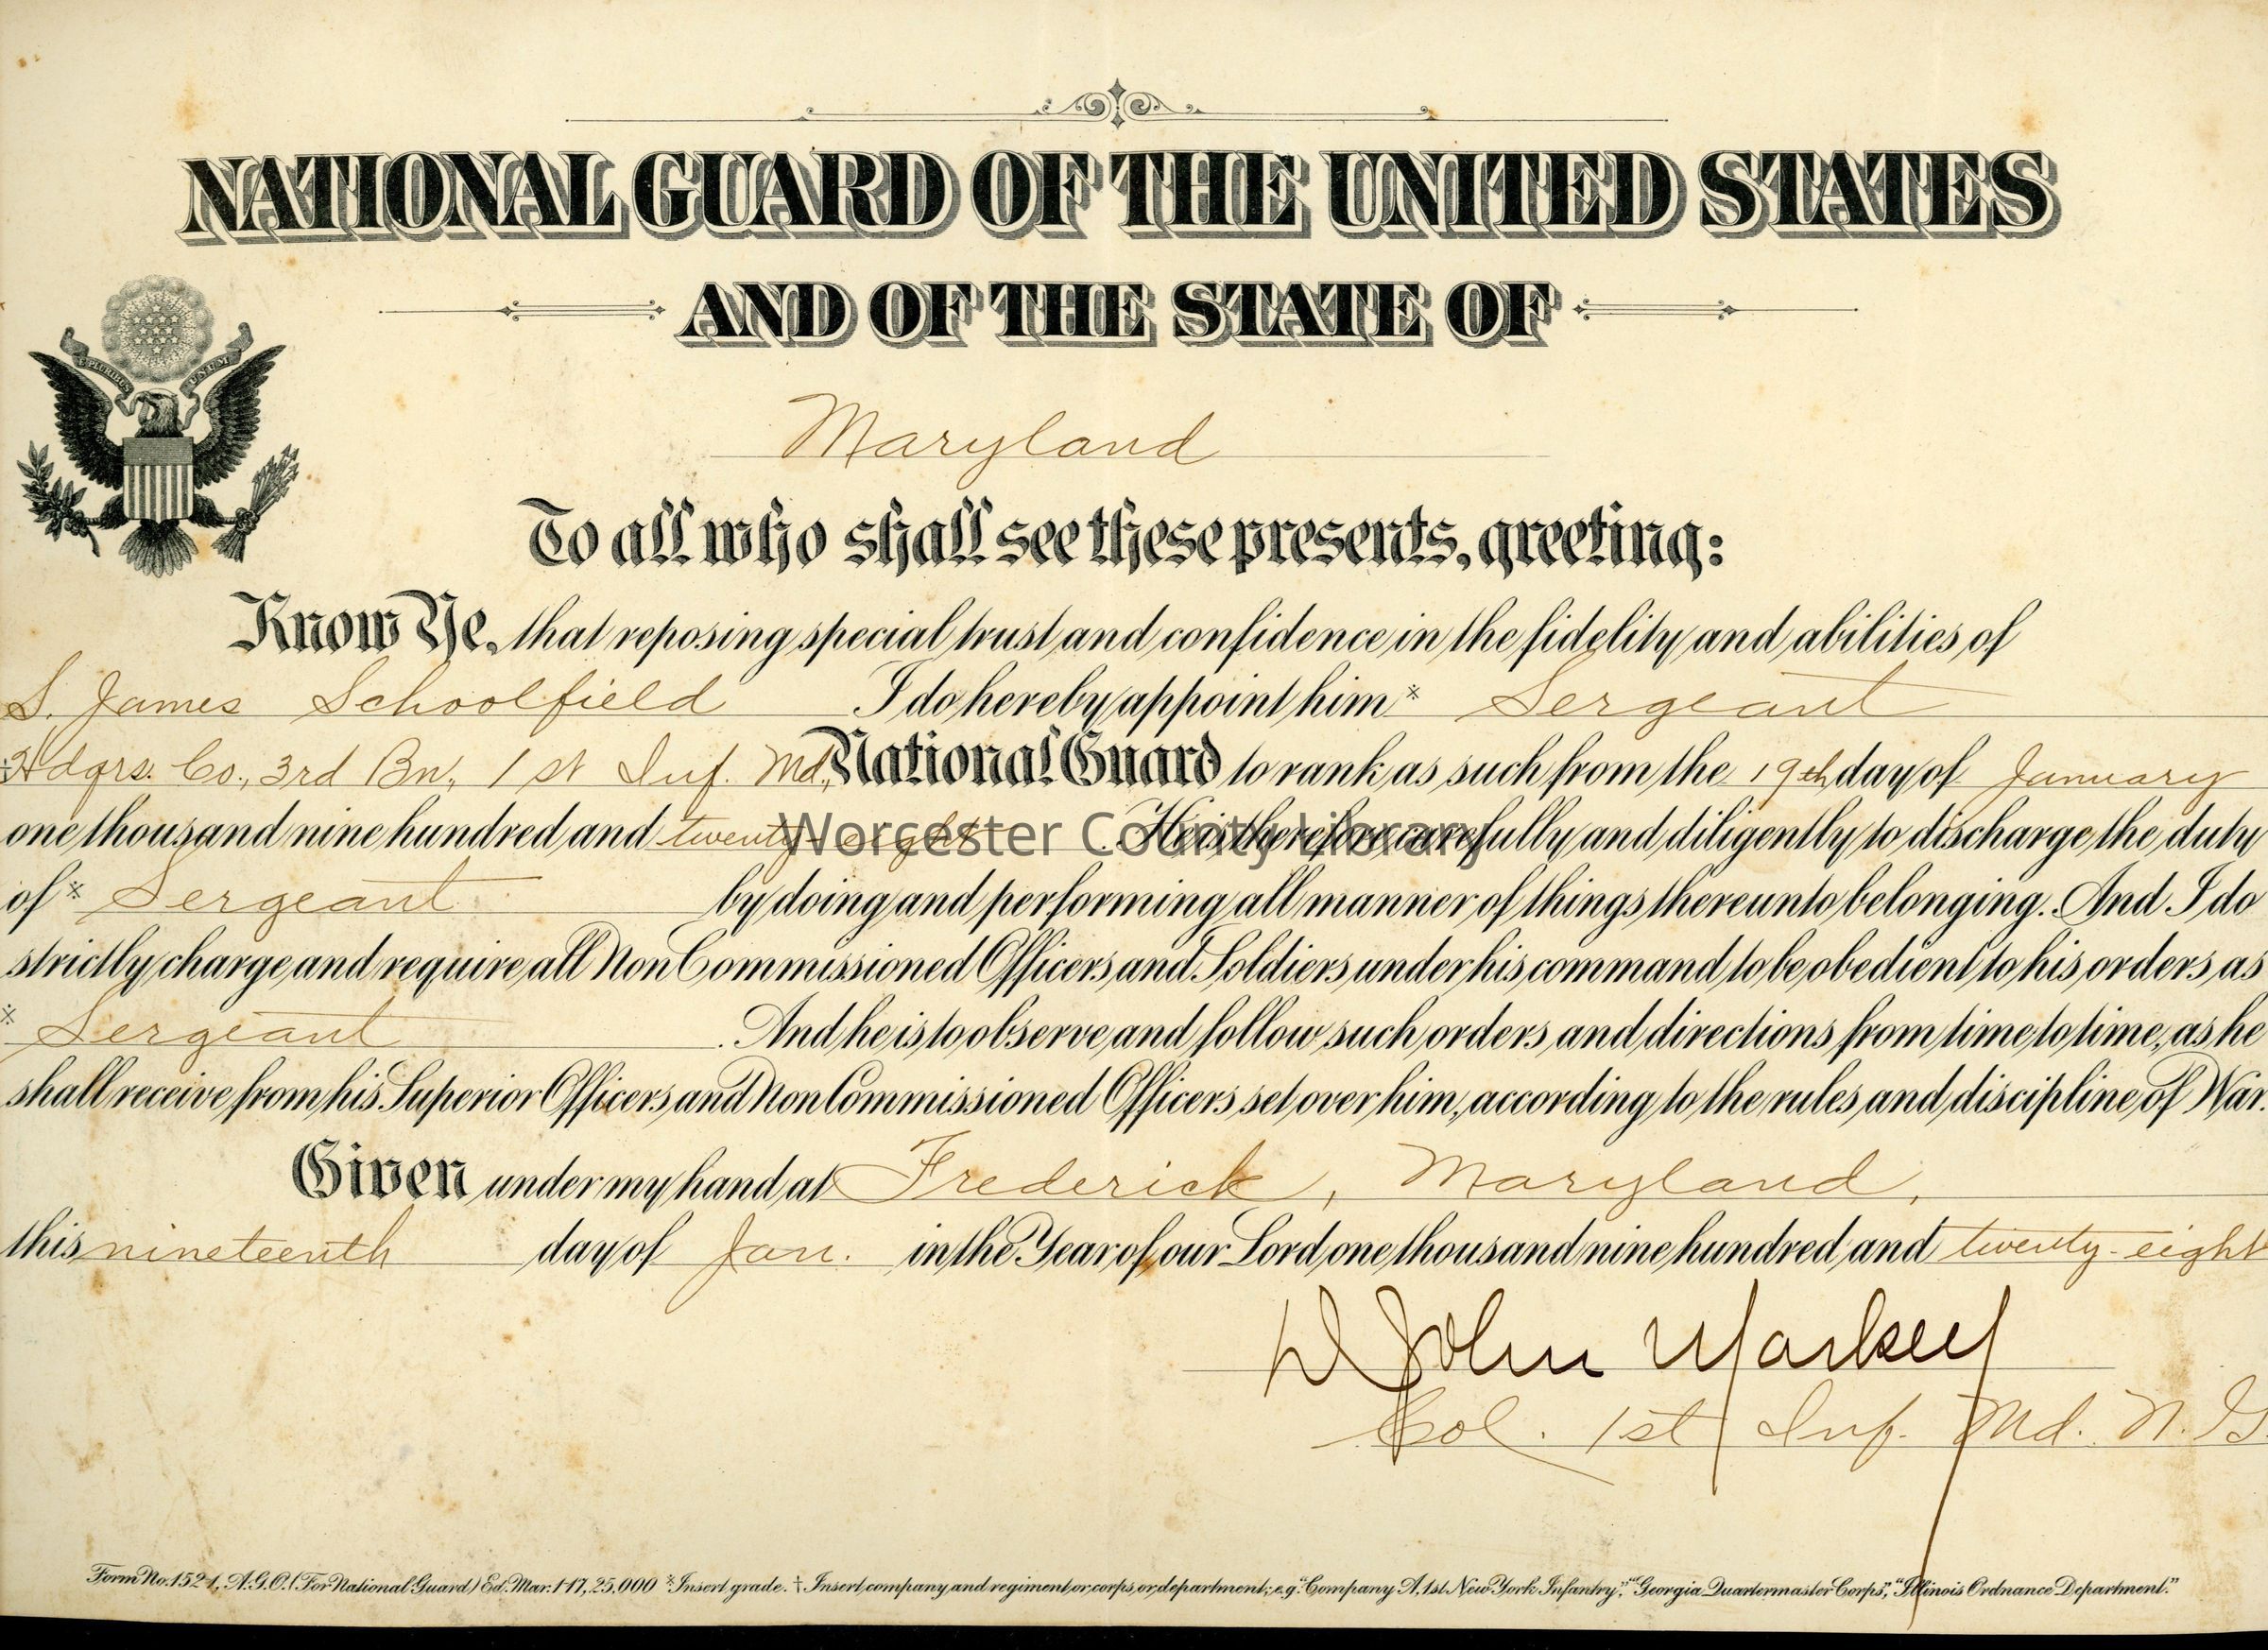 NATIONAL GUARD OF THE UNITED STATES
AND OF THE STATE OF
E PLURIBUS UNUM
Maryland
To all who shall see these presents, greeting:
Know Ye, that reposing special trust and confidence in the fidelity and abilities of
S. James Schoolfield I do hereby appoint him * Sergeant
† Hdqrs. Co., 3rd Bn, 1st Inf. Md, National Guard to rank as such from the 19th day of January
one thousand nine hundred and twenty-eight. He is therefore carefully and diligently to discharge the duty
Worcester County Library
of * Sergeant by doing and performing all manner of things thereunto belonging. And I do
strictly charge and require all Non Commissioned Officers and Soldiers under his command to be obedient to his orders as
* Sergeant. And he is to observe and follow such orders and directions from time to time, as he
shall receive from his Superior Officers and Non Commissioned Officers set over him, according to the rules and discipline of War.
Given under my hand at Frederick, Maryland,
this nineteenth day of Jan. in the Year of our Lord one thousand nine hundred and twenty-eight
D John Markey
Col. 1st Inf. Md. N. G.
Form No. 152-1, A.G.O. (For National Guard) Ed. Mar. 1-17, 25,000 * Insert grade. † Insert company and regiment or corps or department; e.g. "Company A, 1st New York Infantry," "Georgia Quartermaster Corps", "Illinois Ordnance Department."